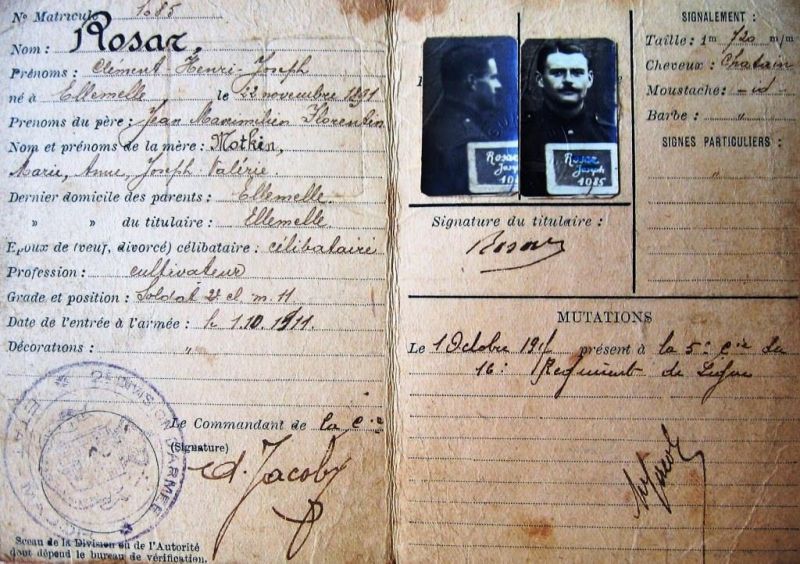 No Matricule 1085
Nom : Rosar,
Prénoms : Clément Henri-Joseph
né à Ellemelle le 22 novembre 1891
Prenoms du père : Jean Maximilien Florentin
Nom et prénoms de la mère : Mothin,
Marie, Anne, Joseph Valérie.
Dernier domicile des parents : Ellemelle.
» » du titulaire : Ellemelle
Epoux de (veuf, divorcé) célibataire : célibataire
Profession : cultivateur
Grade et position : Soldat 2e cl. m. 11
Date de l'entrée à l'armée : le 1.10.1911.
Décorations : "
Le Commandant de la cie
(Signature)
d. Jacoby
2e DIVISION D'ARMÉE
Sceau de la Division ou de l'Autorité
dont dépend le bureau de vérification.
Rosar
Joseph
Rosar
Joseph
1085
Signature du titulaire :
Rosar
SIGNALEMENT :
Taille : 1m 720 m/m
Cheveux : Chatain
Moustache : -id-
Barbe :
SIGNES PARTICULIERS :
"
MUTATIONS
Le 1 Octobre 191 présent à la 5e cie du
16e Régiment de Ligne